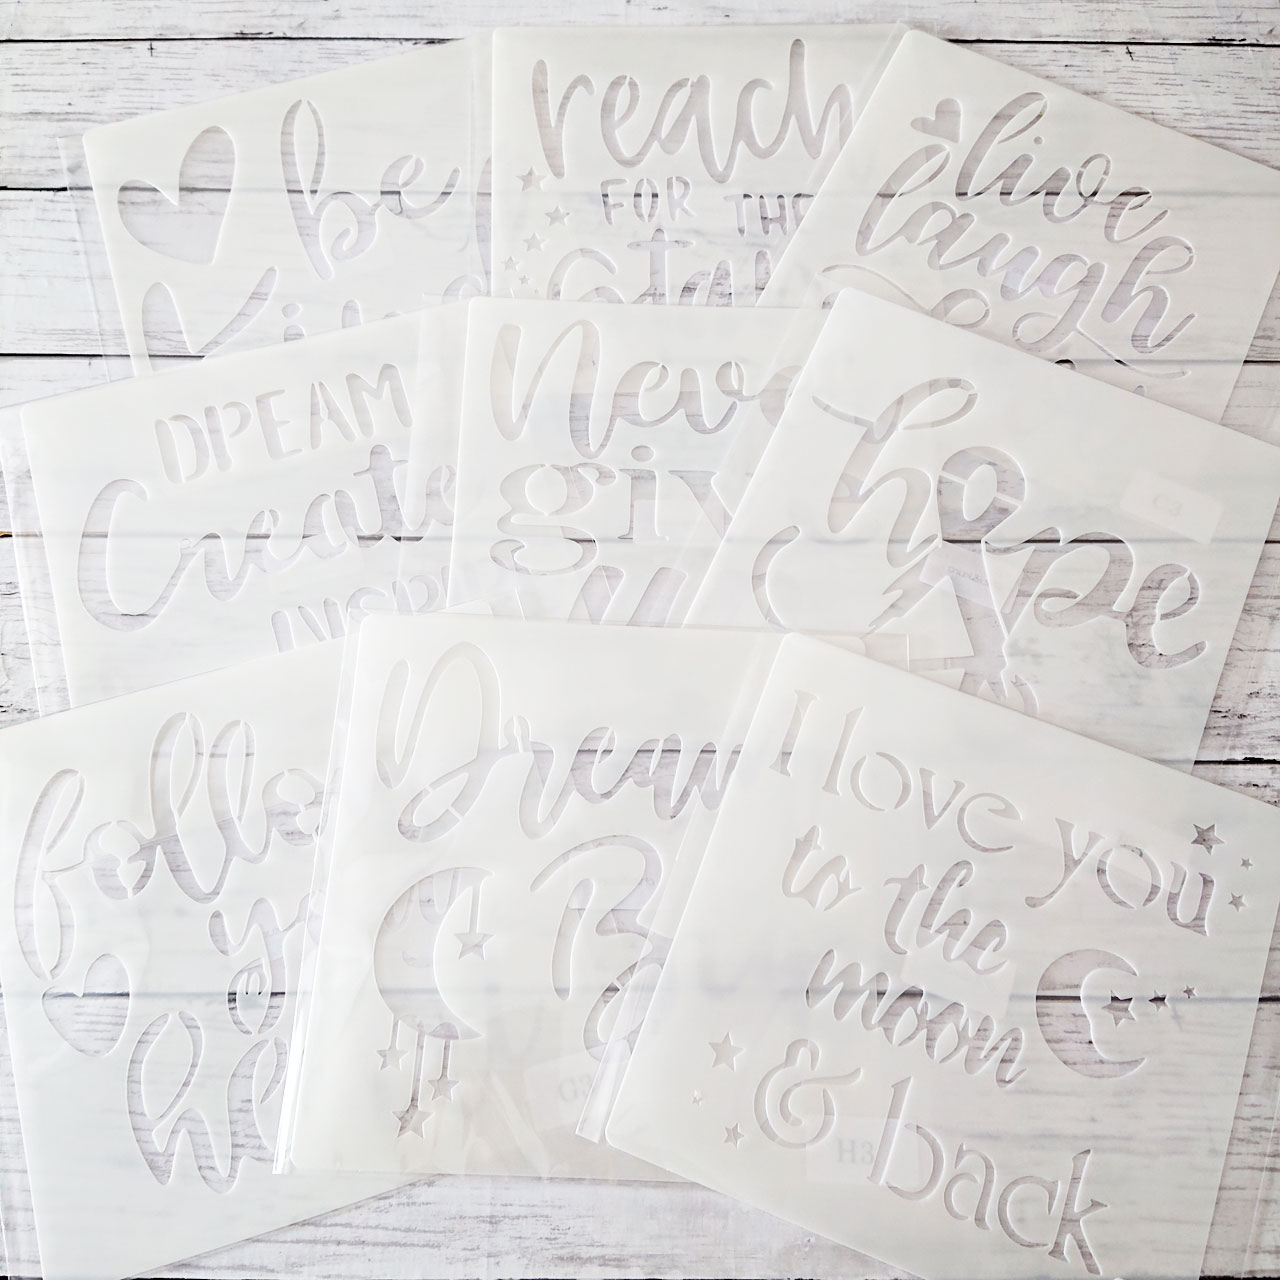 be
Kind
reach
FOR THE
Star
live
laugh
DREAM
Create
INSPI
Neve
giv
hope
C3
follo
yo
he
Dream
B
G3
I love you
to the
moon
& back
H3